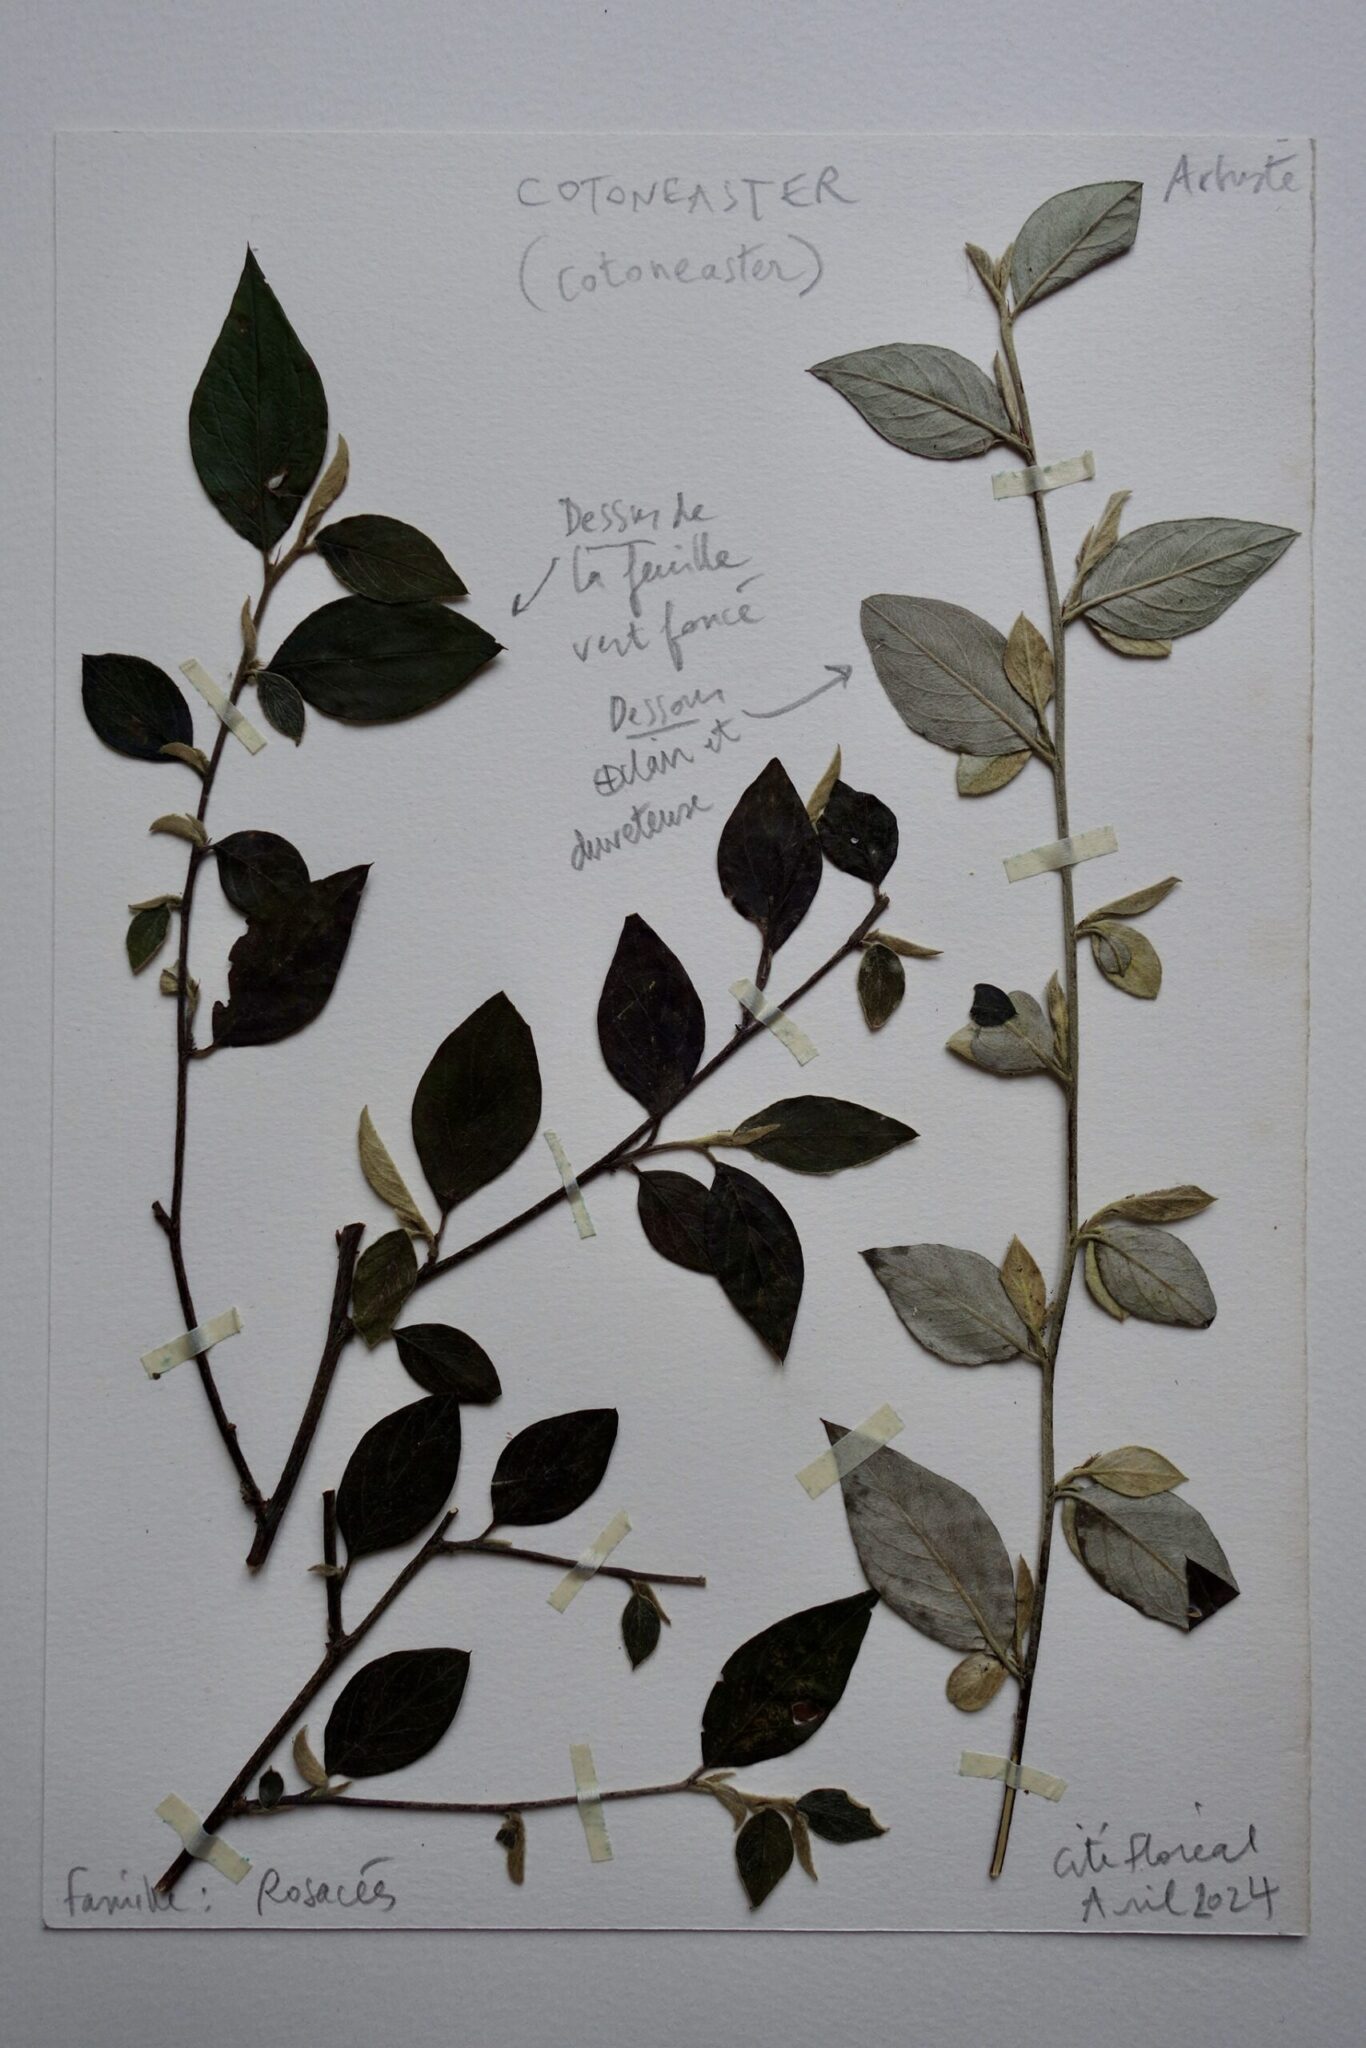 COTONEASTER
(cotoneaster)
Arbuste
Dessus de
la feuille
vert foncé
Dessous
clair et
duveteuse
Famille : Rosacées
Cité Floréal
Avril 2024